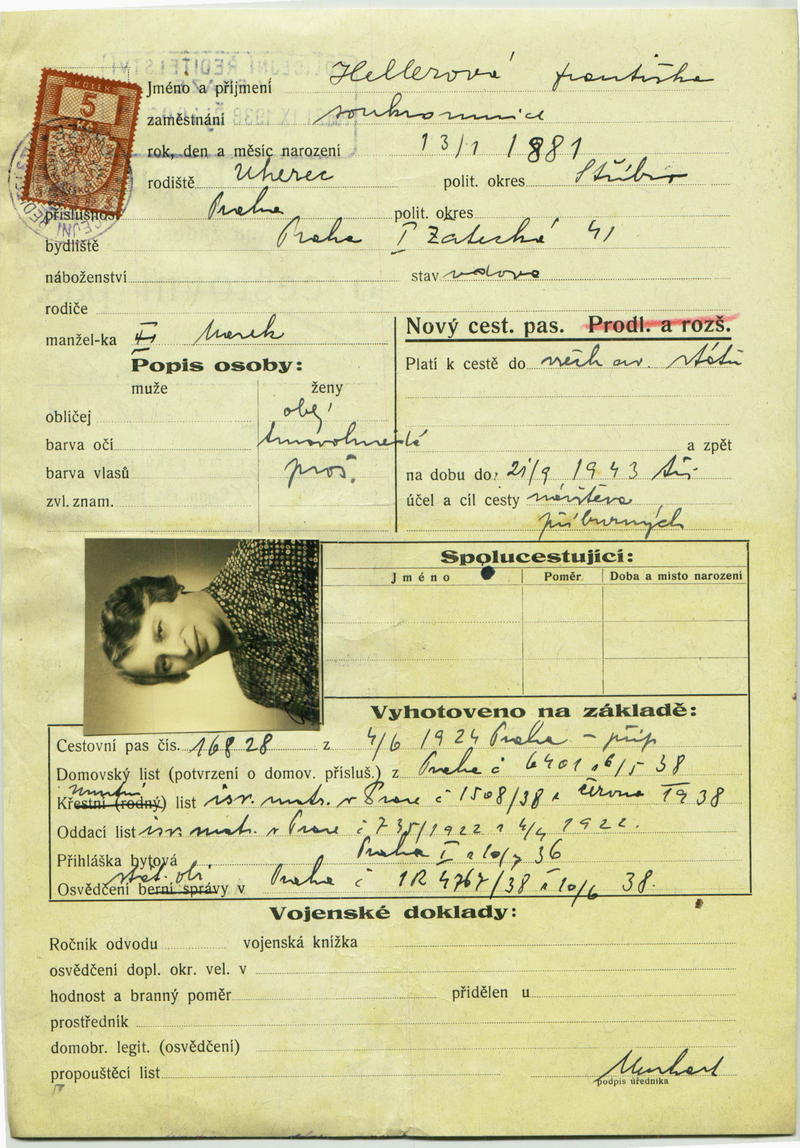 KOLEK
5
Jméno a příjmení Hellerová Františka
zaměstnání soukromnice
rok, den a měsíc narození 13/1 1881
rodiště Uherec polit. okres Stříbro
příslušnost Praha polit. okres
bydliště Praha I Žatecká 41
náboženství stav vdova
rodiče
manžel-ka Marek
Nový cest. pas. Prodl. a rozš.
Popis osoby:
muže ženy
Platí k cestě do všech ev. států
obličej obl.
barva očí tmavohnědá
a zpět
barva vlasů proš.
na dobu do: 21/9 1943
zvl. znam.
účel a cíl cesty návštěva
příbuzných
Spolucestující:
Jméno Poměr Doba a místo narození
Vyhotoveno na základě:
Cestovní pas čís. 16828 z 4/6 1924 Praha - přip
Domovský list (potvrzení o domov. přísluš.) z Praha č 6401 16/5 38
Křestní (rodný) list isr. matr. v Praze č 1508/38 z června 1938
Oddací list isr. matr. v Praze č 735/1922 z 4/4 1922.
Přihláška bytová Praha I z 10/7 36
stát. obč.
Osvědčení berní správy v Praha č 1R 4767/38 z 10/6 38.
Vojenské doklady:
Ročník odvodu vojenská knížka
osvědčení dopl. okr. vel. v
hodnost a branný poměr přidělen u
prostředník
domobr. legit. (osvědčení)
propouštěcí list
podpis úředníka